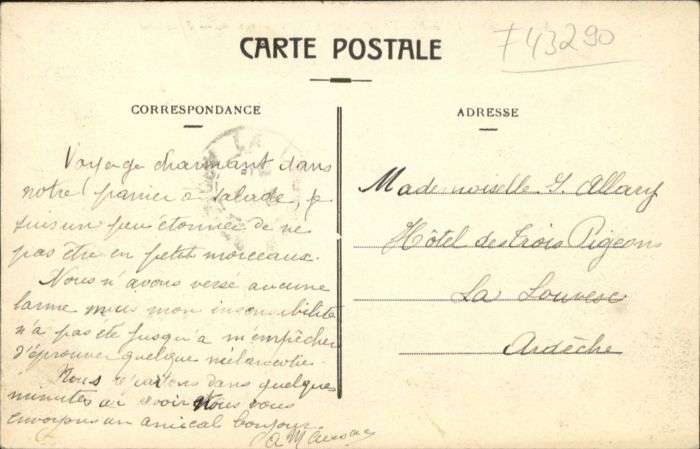 CARTE POSTALE
743290
CORRESPONDANCE
ADRESSE
Voyage charmant dans
notre panier à salade, je
suis un peu étonnée de ne
pas être en petits morceaux.
Nous n'avons versé aucune
larme mais mon insensibilité
n'a pas été jusqu'à m'empêcher
d'éprouver quelque mélancolie.
Nous dans quelques
minutes Nous vous
envoyons un amical bonjour.
Mademoiselle S. Allary
Hôtel des Trois Pigeons
La Louvesc
Ardèche